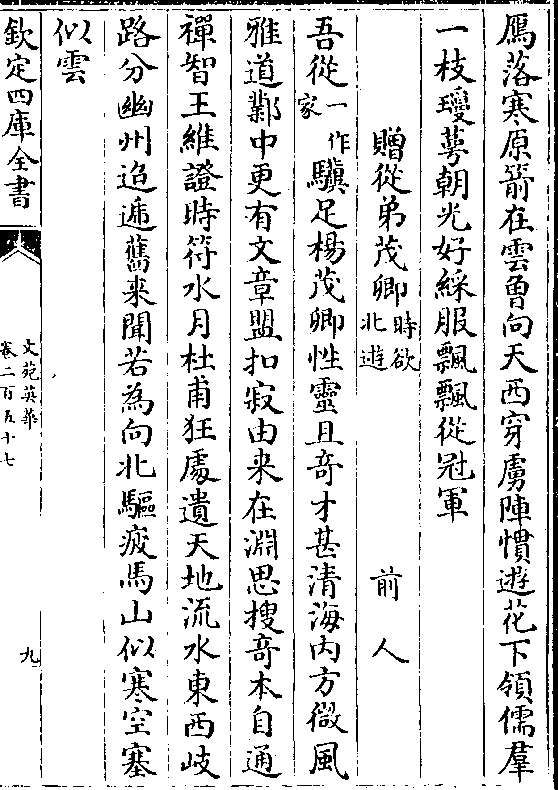 鴈落寒原箭在雲曾向天西穿虜陣慣遊花下領儒羣
一枝瓊萼朝光好綵服飄飄從冠軍
贈從弟茂卿時欲北遊 前人
吾從一作家驥足楊茂卿性靈且奇才甚清海内方微風
雅道鄴中更有文章盟扣寂由来在淵思搜奇本自通
禪智王維證時符水月杜甫狂處遺天地流水東西岐
路分幽州迢遞舊来聞若為向北驅疲馬山似寒空塞
似雲
欽定四庫全書
文苑英華
卷二百五十七
九